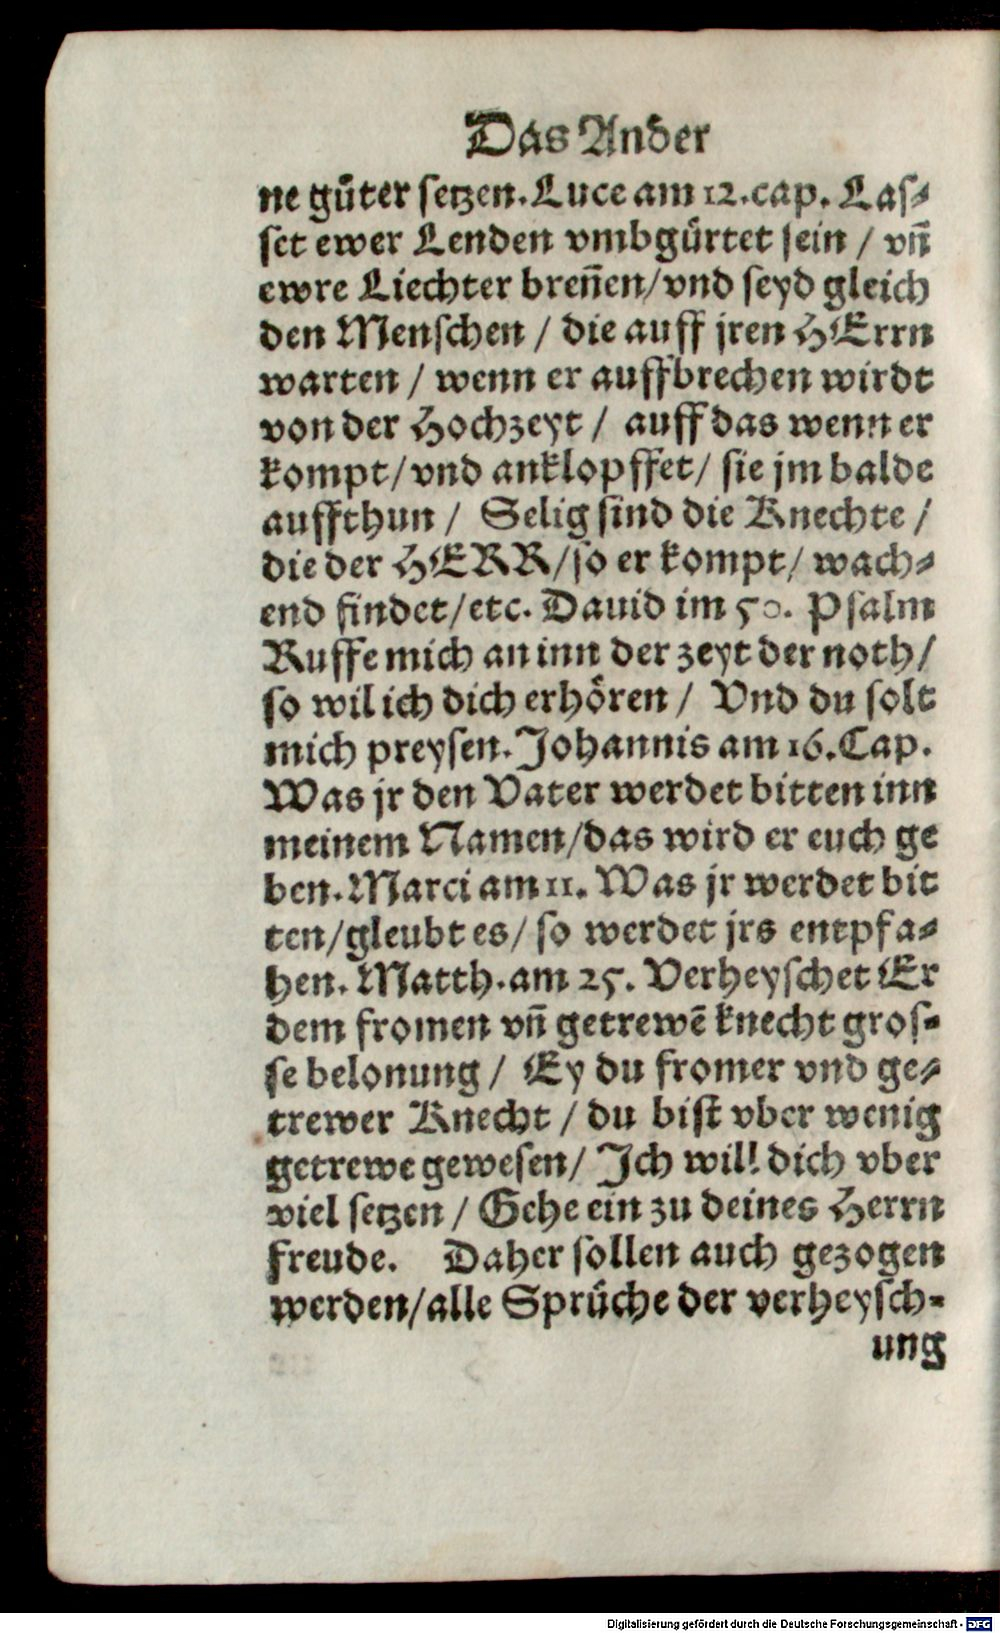 Das Ander
ne gůter setzen. Luce am 12. cap. Las⸗
set ewer Lenden vmbgürtet sein / vñ
ewre Liechter breñen/vnd seyd gleich
den Menschen / die auff jren HErrn
warten / wenn er auffbrechen wirdt
von der Hochzeyt / auff das wenn er
kompt/vnd anklopffet/ sie jm balde
auffthun / Selig sind die Knechte /
die der HERR/so er kompt/ wach⸗
end findet/etc. Dauid im 50. Psalm
Ruffe mich an inn der zeyt der noth/
so wil ich dich erhören / Vnd du solt
mich preysen. Johannis am 16. Cap.
Was jr den Vater werdet bitten inn
meinem Namen/das wird er euch ge
ben. Marci am 11. Was jr werdet bit
ten/gleubt es/ so werdet jrs entpfa⸗
hen. Matth. am 25. Verheyschet Er
dem fromen vñ getrewẽ knecht gros⸗
se belonung / Ey du fromer vnd ge⸗
trewer Knecht / du bist vber wenig
getrewe gewesen/ Jch will dich vber
viel setzen / Gehe ein zu deines Herrn
freude. Daher sollen auch gezogen
werden/alle Sprüche der verheysch⸗
ung
Digitalisierung gefördert durch die Deutsche Forschungsgemeinschaft - DFG